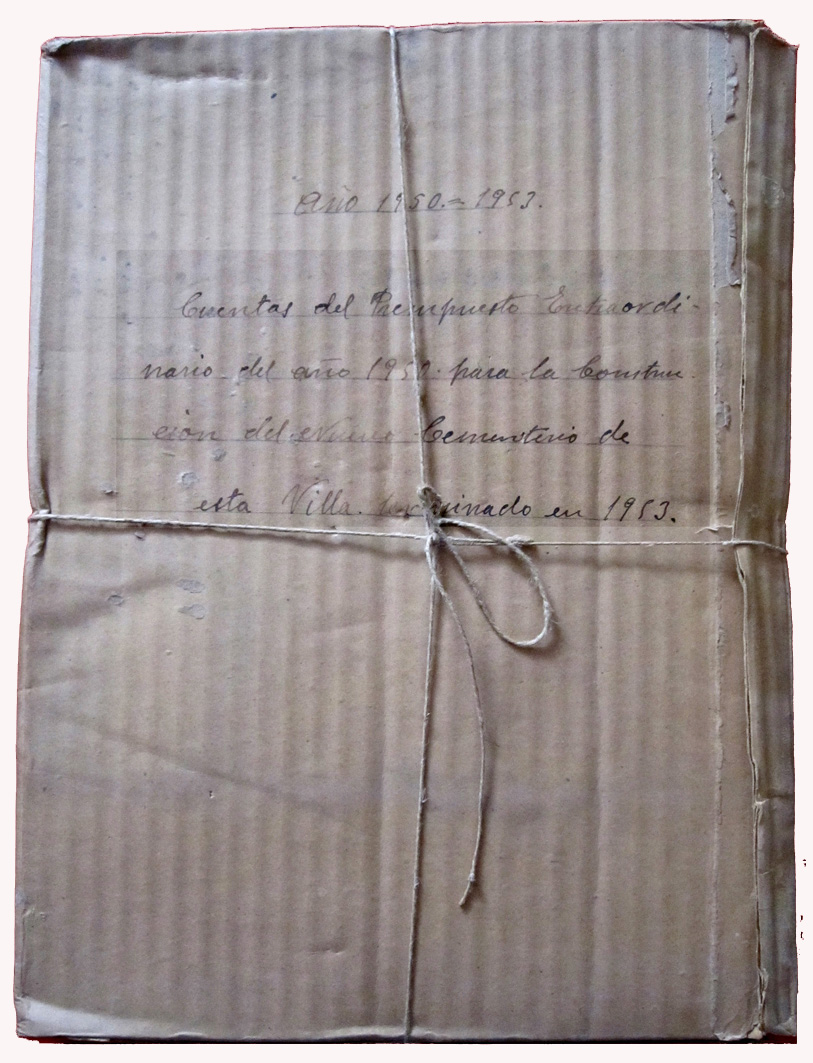 Año 1950.= 1953.
Cuentas del Presupuesto Extraordi-
nario del año 1950. para la Construc
ción del Nuevo Cementerio de
esta Villa. terminado en 1953.